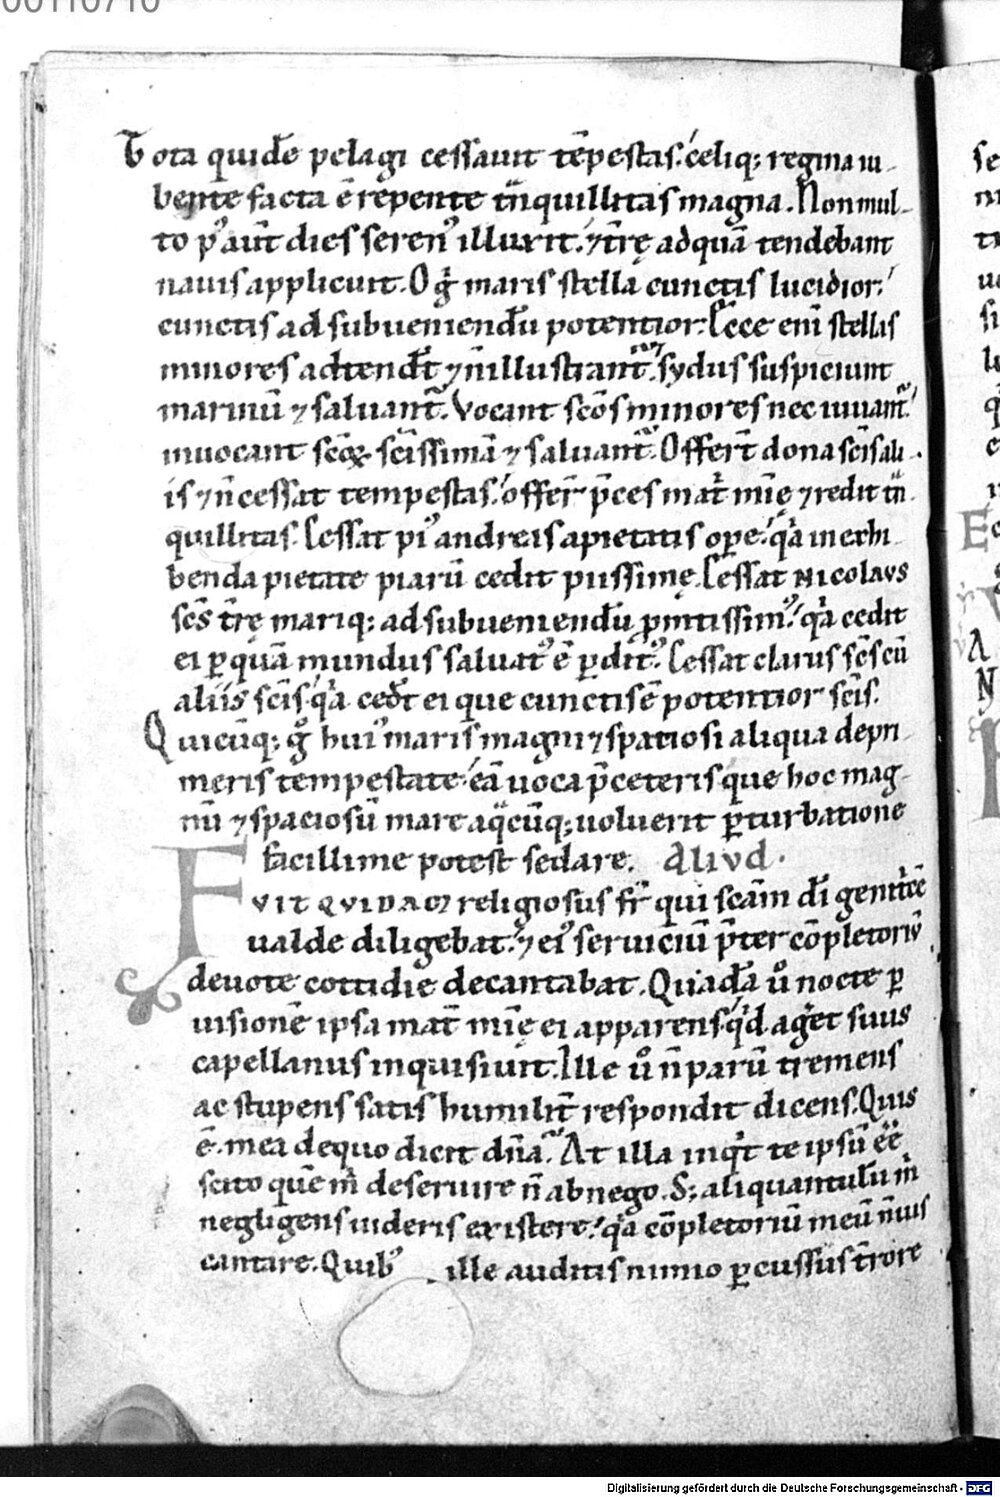 00110710
Tota quidē pelagi cessauit tēpestas. celiq; regina iu-
bente facta ē repente tnquillitas magna. Non mul-
to p᾽ aut̄ dies seren᾽ illuxit. ⁊ tr̄ę ad quā tendebant
nauis applicuit. O g̊ maris stella cunctis lucidior.
cunctis ad subueniendū potentior. Ecce eni stellas
minores adtendt̄ ⁊ ñ illustrant̄. sydus suspiciunt
marinū ⁊ saluant̄. Vocant sc̄os minores nec iuuant̄.
inuocant sc̄oꝝ sc̄issimā ⁊ saluant̄. Offert̄ dona sc̄is ali-
is ⁊ ñ cessat tempestas. offer̄ p̄ces mat̄ mīę ⁊ redit tn-
quillitas. Cessat pi᾽ andreas a pietatis ope. qͥa in exhi-
benda pietate piarū cedit piissimę. Cessat NICOLAVS
sc̄s tr̄ę mariq; ad subueniendū pmtissim᾽. qͥa cedit
ei ꝑ quā mundus saluat᾽ ē ꝑdit᾽. Cessat clarus sc̄s cū
aliis sc̄is. qͥa cedt̄ ei que cunctis ē potentior sc̄is.
Quicūq; g̊ hui᾽ maris magni ⁊ spatiosi aliqua depri-
meris tempestate. eā uoca p̄ ceteris que hoc mag-
nū ⁊ spaciosū mare a qͣcūq; uoluerit ꝑturbatione
facillime potest sedare. Aliud.
FVIT QVIDAM religiosus fr̄ qui scām dī genitͥcē
ualde diligebat. ⁊ ei᾽ seruiciū p̄ter cōpletoriū
deuote cottidie decantabat. Quadā ů nocte ꝑ
uisionē ipsa mat̄ mīę ei apparens. qͥd aget̄ suus
capellanus inquisiuit. Ille ů ñ parū tremens
ac stupens satis humilit̄ respondit dicens. Quis
ē. mea de quo dicit dn̄a. At illa inqͥt te ipsū ēē
scito quē mͥ deseruire ñ abnego. S; aliquantulū mͥ
negligens uideris existere. qͥa cōpletoriū meū ñ uis
cantare. Quib᾽ ille auditis nimio ꝑcussus tr̄rore
Digitalisierung gefördert durch die Deutsche Forschungsgemeinschaft - DFG